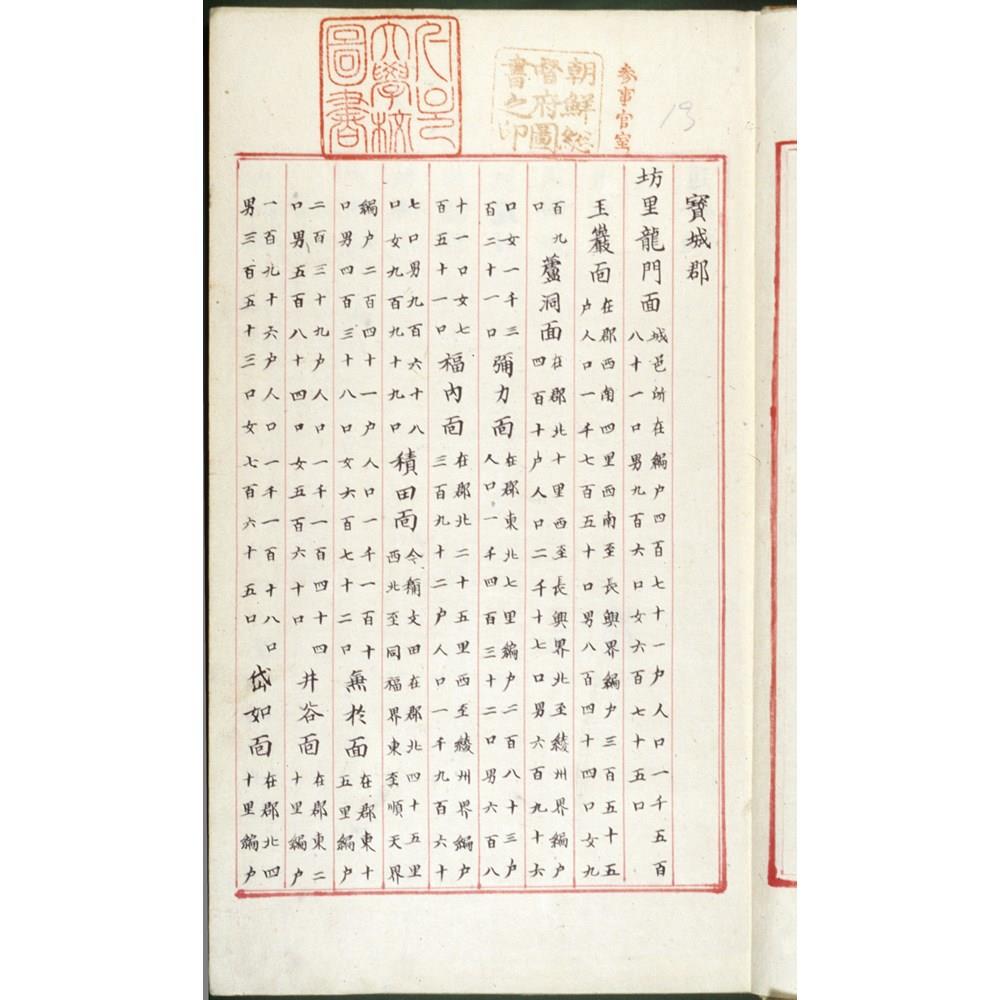 大學校
圖書
朝鮮総
督府圖
書之印
参事官室
寶城郡
坊里龍門面
城邑所在編户四百七十一户人口一千五百
八十一口男九百六口女六百七十五口
玉巖面
在郡西南四里西南至長興界編户三百五十五
户人口一千七百五十口男八百四十四口女九
百九
口
蘆洞面
在郡北十里西至長興界北至綾州界編户
四百十户人口二千十七口男六百九十六
口女一千三
百二十一口
彌力面
在郡東北七里編户二百八十三户
人口一千四百三十二口男六百八
十一口女七
百五十一口
福內面
在郡北二十五里西至綾州界編户
三百九十二户人口一千九百六十
七口男九百六十八
口女九百九十九口
積田面
今稱文田在郡北四十五里
西北至同福界東至順天界
編户二百四十一户人口一千一百十
口男四百三十八口女六百七十二口
無於面
在郡東十
五里編户
二百三十九户人口一千一百四十四
口男五百八十四口女五百六十口
井谷面
在郡東二
十里編户
一百九十六户人口一千一百十八口
男三百五十三口女七百六十五口
岱如面
在郡北四
十里編户